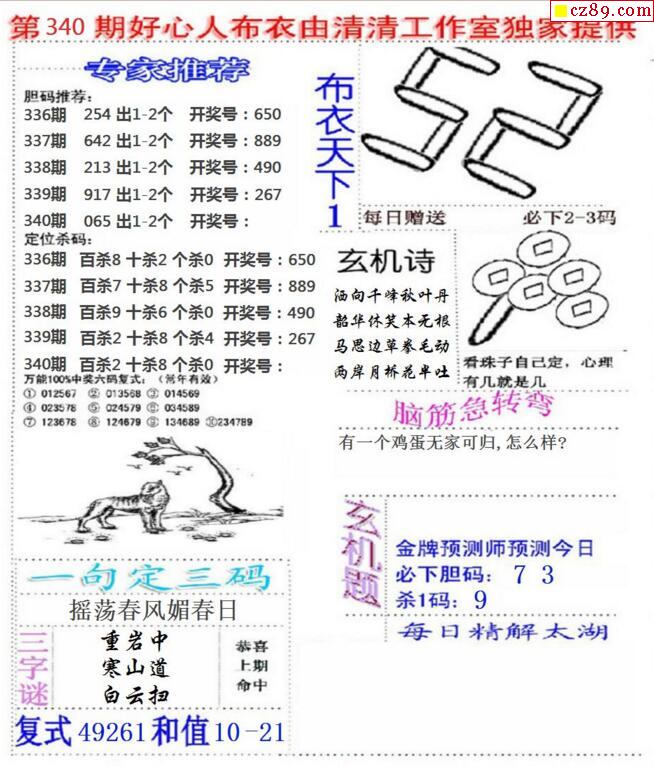 cz89.com
第 340 期好心人布衣由清清工作室独家提供
专家推荐
胆码推荐:
336期 254 出1-2个 开奖号：650
337期 642 出1-2个 开奖号：889
338期 213 出1-2个 开奖号：490
339期 917 出1-2个 开奖号：267
340期 065 出1-2个 开奖号：
定位杀码：
336期 百杀8 十杀2 个杀0 开奖号：650
337期 百杀7 十杀8 个杀5 开奖号：889
338期 百杀9 十杀6 个杀0 开奖号：490
339期 百杀2 十杀8 个杀4 开奖号：267
340期 百杀2 十杀8 个杀0 开奖号：
万能100%中奖六码复式：（常年有效）
① 012567 ② 013568 ③ 014569
④ 023578 ⑤ 024579 ⑥ 034589
⑦ 123678 ⑧ 124679 ⑨ 134689 ⑩234789
一句定三码
摇荡春风媚春日
三字谜
重岩中
寒山道
白云扫
恭喜
上期
命中
复式 49261 和值 10-21
布衣天下1
52
每日赠送 必下2-3码
玄机诗
洒向千峰秋叶丹
韶华休笑本无根
马思边草拳毛动
两岸月桥花半吐
看珠子自己定，心理
有几就是几
脑筋急转弯
有一个鸡蛋无家可归,怎么样?
玄机题
金牌预测师预测今日
必下胆码： 7 3
杀1码： 9
每日精解太湖